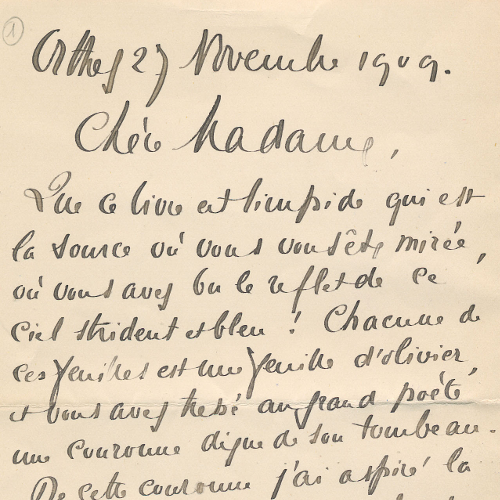 1
Orthez 27 Novembre 1909.
Chère Madame,
Que ce livre est limpide qui est
la source où vous vous êtes mirée,
où vous avez bu le reflet de ce
ciel strident et bleu ! Chacune de
ces feuilles est une feuille d'olivier,
et vous avez tressé au grand poète
une couronne digne de son tombeau.
De cette couronne j'ai aspiré la